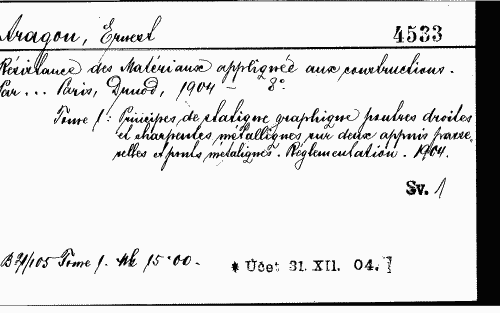 Aragon, Ernest 4533
Résistance des Matériaux appliquée aux constructions.
Par ... Paris, Dunod, 1904 – 8°
Tome 1: Principes de statique graphique poutres droites
et charpentes métalliques sur deux appuis passe-
relles et ponts métaliques. Réglementation. 1904.
Sv. 1
Tome 1. Mk 15·00.- * Účet 31. XII. 04.